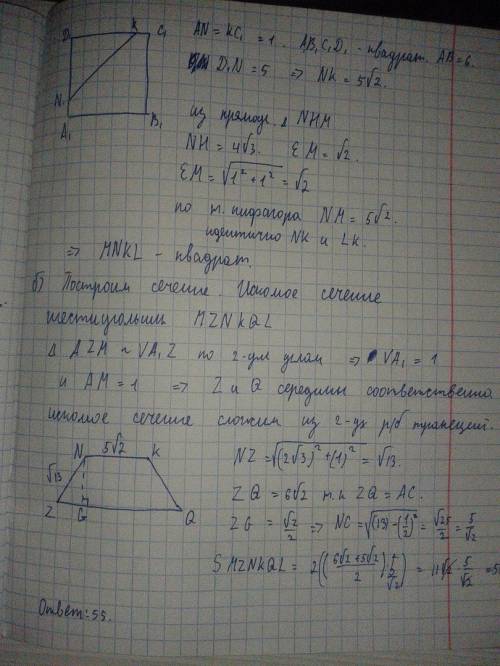 D₁ K C₁
N
A₁ B₁
AN = KC₁ = 1. AB₁C₁D₁ - квадрат. AB = 6.
D₁N = 5 ⇒ NK = 5√2.
из прямоуг. Δ NHM
NH = 4√3. EM = √2.
EM = √(1² + 1²) = √2
по т. пифагора NM = 5√2.
идентично NK и LK.
⇒ MNKL - квадрат.
б) Построим сечение. Искомое сечение
шестиугольник MZNKQL
Δ AZM ~ VA₁Z по 2-ум углам ⇒ VA₁ = 1
и AM = 1 ⇒ Z и Q середины соответственно
искомое сечение сложим из 2-ух р/б трапеций.
N 5√2 K
√13
Z G Q
NZ = √((2√3)² + (1)²) = √13.
ZQ = 6√2 т.к ZQ = AC.
ZG = √2/2 ⇒ NG = √((13) - (1/2)²) = √25/2 = 5/√2
S MZNKQL = 2((6√2 + 5√2)/2) 5/√2) = 11√2 · 5/√2 = 5
Ответ: 55.